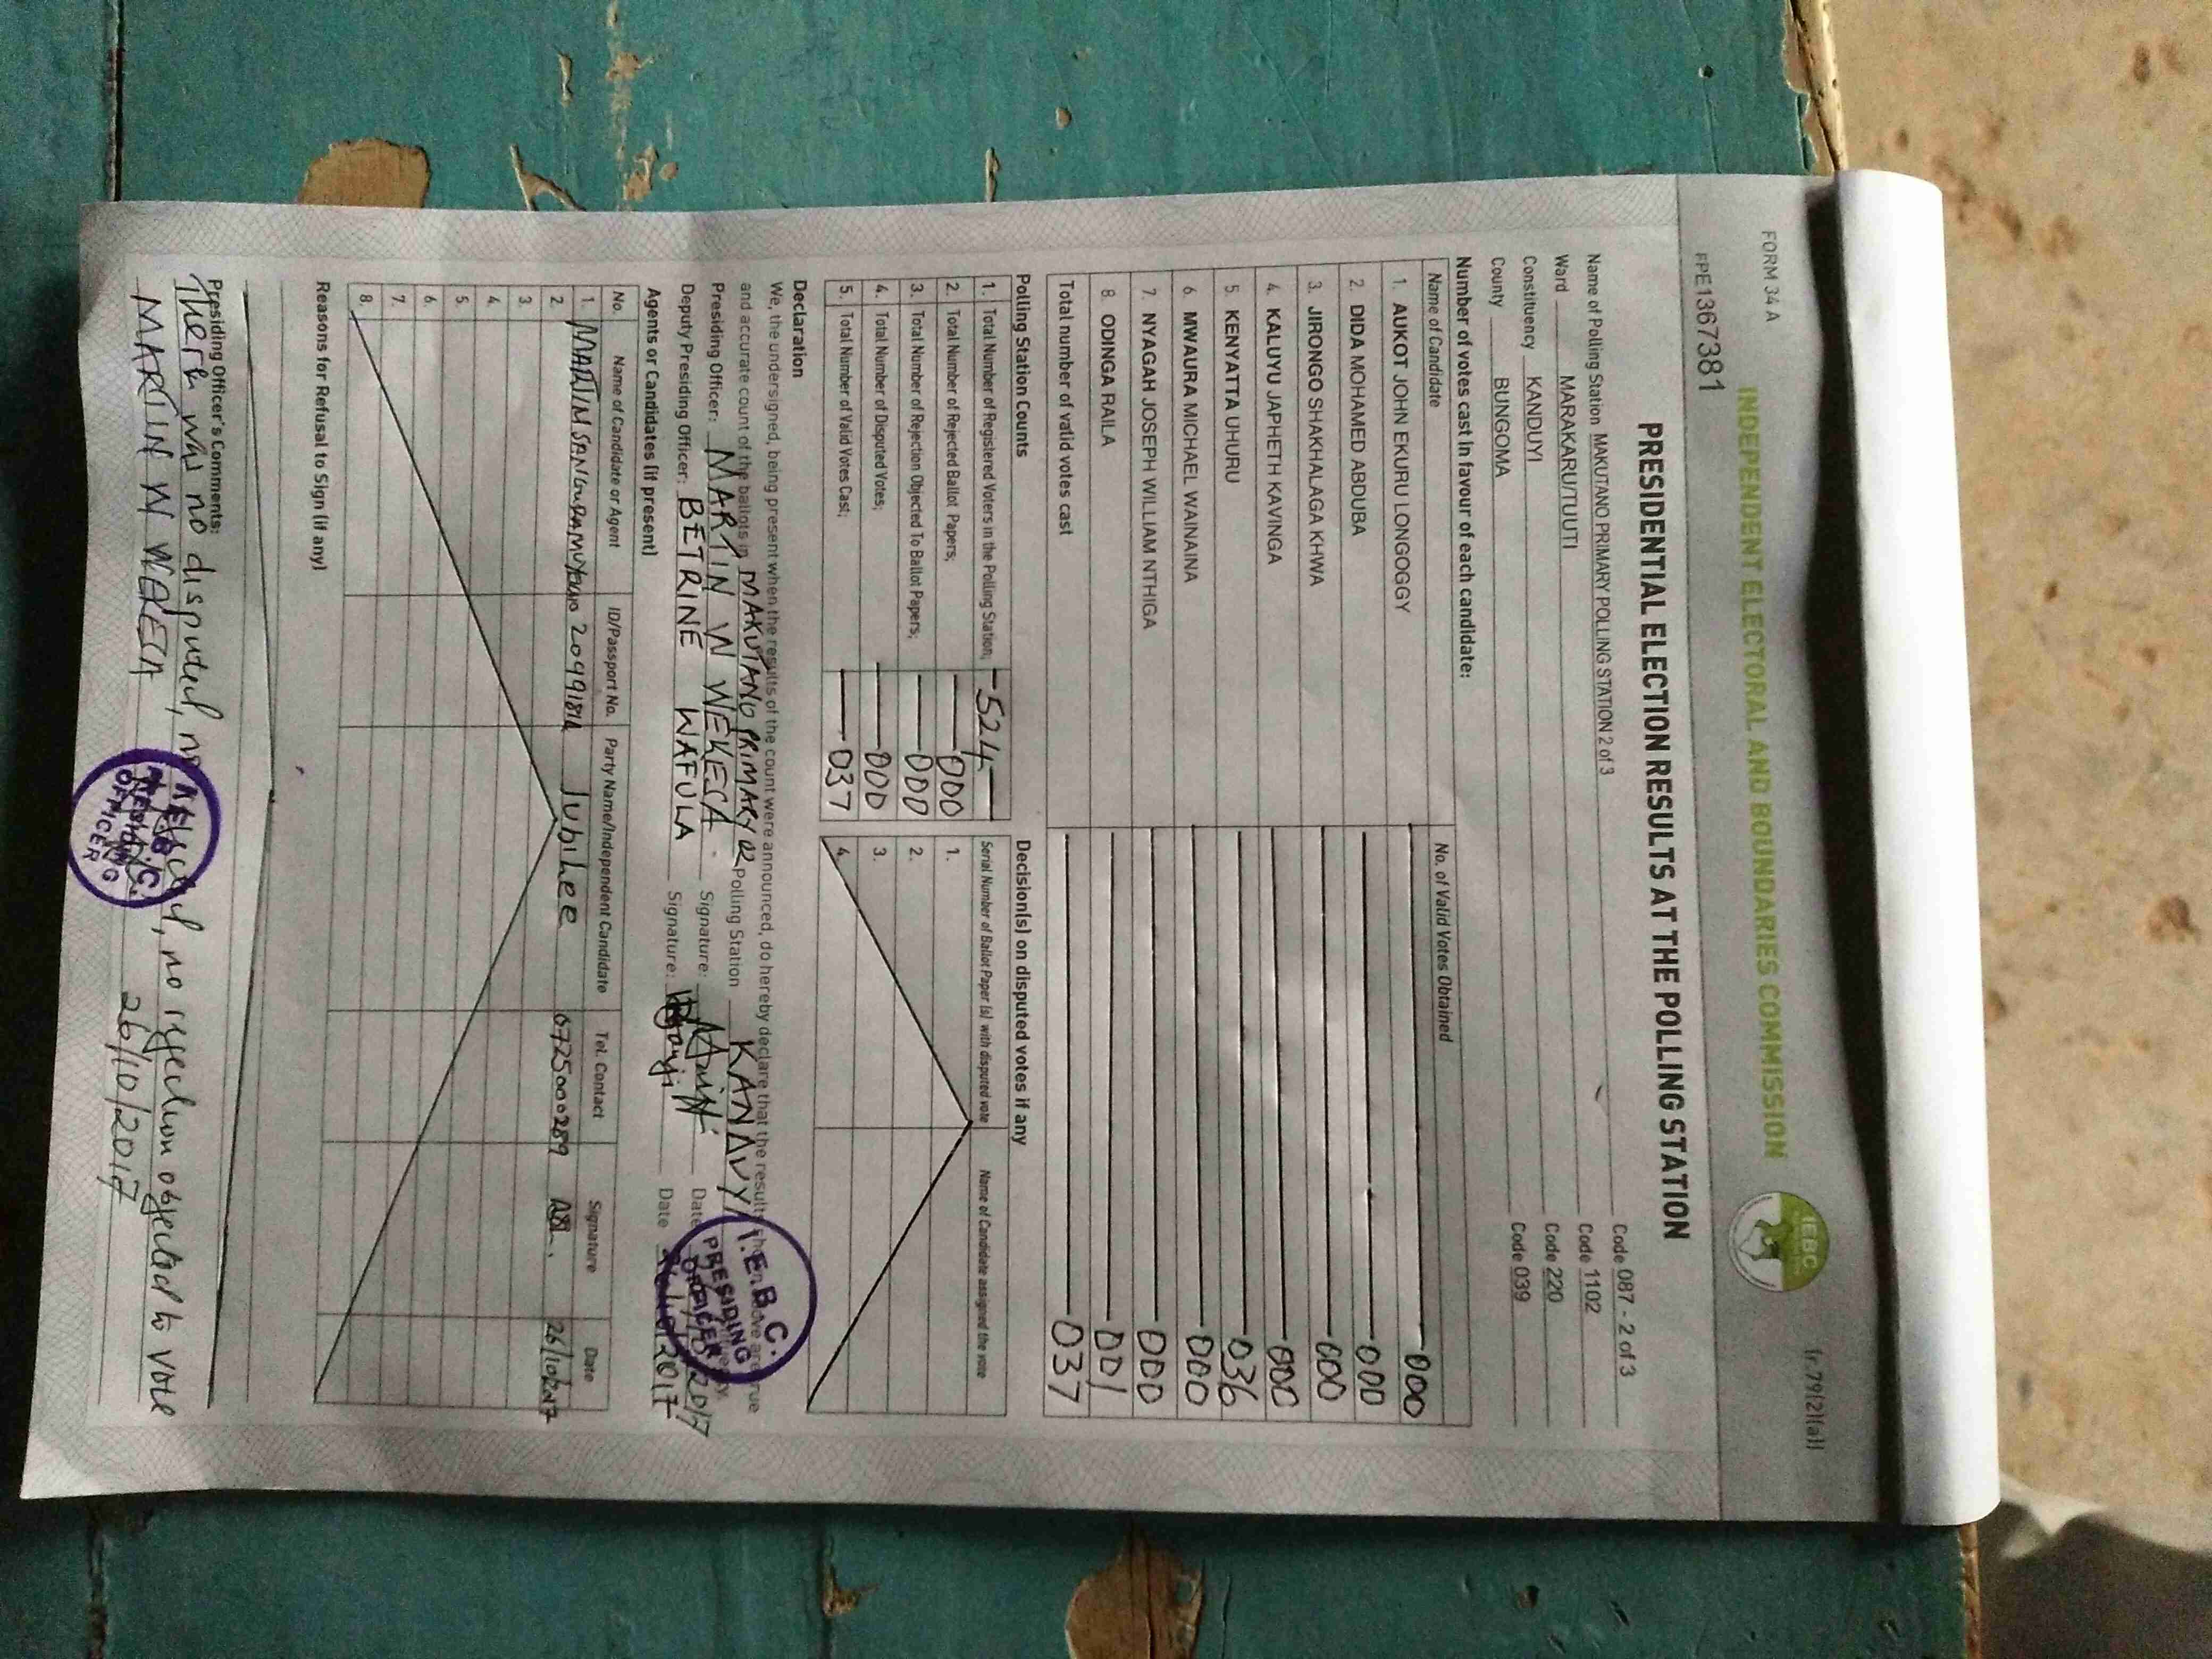 FORM 34 A
(r.79(2)(a))
INDEPENDENT ELECTORAL AND BOUNDARIES COMMISSION
IEBC
FPE1367381
PRESIDENTIAL ELECTION RESULTS AT THE POLLING STATION
Name of Polling Station MAKUTANO PRIMARY POLLING STATION 2 of 3 Code 087 - 2 of 3
Ward MARAKARU/TUUTI Code 1102
Constituency KANDUYI Code 220
County BUNGOMA Code 039
Number of votes cast in favour of each candidate:
Name of Candidate No. of Valid Votes Obtained
1. AUKOT JOHN EKURU LONGOGGY 000
2. DIDA MOHAMED ABDUBA 000
3. JIRONGO SHAKHALAGA KHWA 000
4. KALUYU JAPHETH KAVINGA 000
5. KENYATTA UHURU 036
6. MWAURA MICHAEL WAINAINA 000
7. NYAGAH JOSEPH WILLIAM NTHIGA 000
8. ODINGA RAILA 001
Total number of valid votes cast 037
Polling Station Counts
1. Total Number of Registered Voters in the Polling Station; 524
2. Total Number of Rejected Ballot Papers; 000
3. Total Number of Rejection Objected To Ballot Papers; 000
4. Total Number of Disputed Votes; 000
5. Total Number of Valid Votes Cast; 037
Decision(s) on disputed votes if any
Serial Number of Ballot Paper (s) with disputed vote Name of Candidate assigned the vote
1.
2.
3.
4.
Declaration
We, the undersigned, being present when the results of the count were announced, do hereby declare that the results shown above are true
and accurate count of the ballots in MAKUTANO PRIMARY 02 Polling Station KANDUYI
Presiding Officer: MARTIN W WEKECA Signature: Date 26/10/2017
Deputy Presiding Officer: BETRINE WAFULA Signature: Date 26/10/2017
I.E.B.C.
PRESIDING
OFFICER
Agents or Candidates (if present)
No. Name of Candidate or Agent ID/Passport No. Party Name/Independent Candidate Tel. Contact Signature Date
1. MARTIN Jubilee 0725000289 26/10/2017
2.
3.
4.
5.
6.
7.
8.
Reasons for Refusal to Sign (if any)
Presiding Officer's Comments:
There was no disputed, no rejected, no rejection objected to vote
MARTIN W WEKECA 26/10/2017
I.E.B.C.
PRESIDING
OFFICER